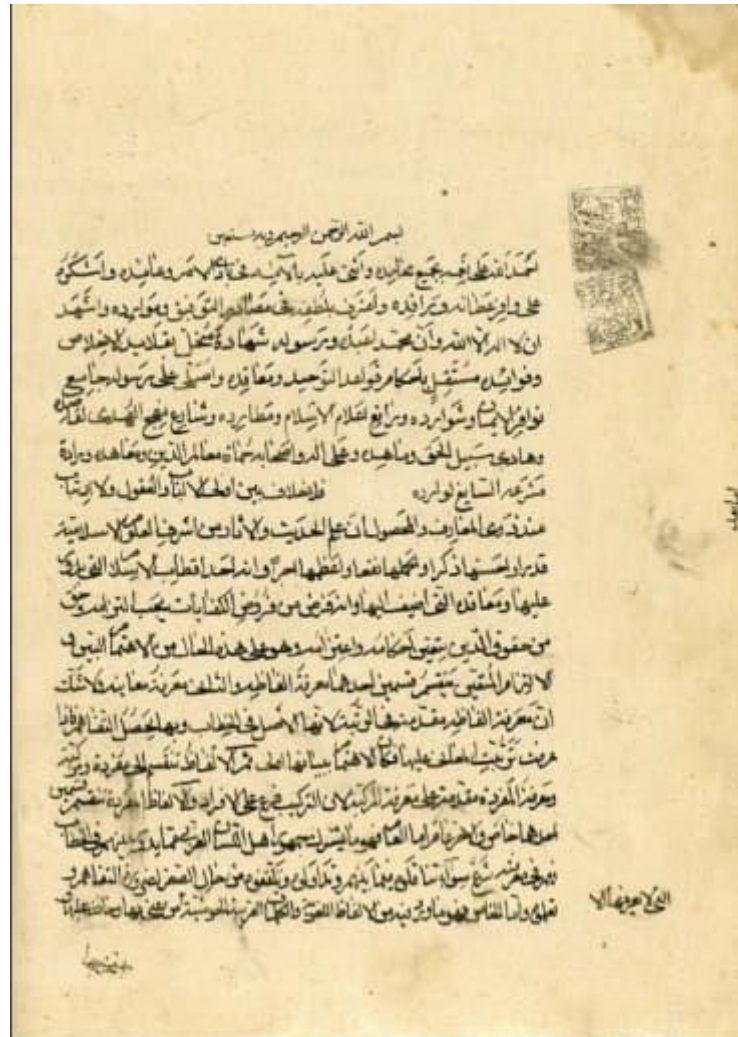 بسم الله الرحمن الرحيم وبه نستعين
احمد الله على نعمه بجميع محامده واثنى عليه بآلائه في بادئ الامر وعائده واشكره
على وافر عطائه ورافده واعترف بلطفه في مصادر التوفيق وموارده واشهد
ان لا اله الا الله وان محمدا عبده ورسوله شهادة متحل بقلايد الاخلاص
وفرائده مستقل باحكام قواعد التوحيد ومعاقده واصلى على رسوله جامع
نوافر الايمان وشوارده ورافع اعلام الاسلام ومطارده وشارع نهج الهدى لقاصده
وهادى سبيل الحق وماهده وعلى آله واصحابه حماة معالم الدين ومعاهده ورادة
مشرعه السايغ لوارده فلا خلاف بين اولى الالباب والعقول ولا ارتياب
عند ذوى المعارف والمحصول ان علم الحديث والاثار من اشرف العلوم الاسلامية
قدرا واحسنها ذكرا واكملها نفعا واعظمها اجرا وانه احد اقطاب الاسلام التى يدور
عليها ومعاقده التى اضيف اليها وانه فرض من فروض الكفايات يجب التزامه وحق
من حقوق الدين يتعين احكامه واعتزامه وهو على هذه الحال من الاهتمام البين و
الالتزام المتعين ينقسم قسمين احدهما معرفة الفاظه والثانى معرفة معانيه ولا شك
ان معرفة الفاظه مقدمة في الرتبة لانها الاصل في الخطاب وبها يحصل التفاهم فاذا
عرفت ترتبت المعانى عليها فكان الاهتمام ببيانها اولى ثم الالفاظ تنقسم الى مفردة ومركبة
ومعرفة المفردة مقدمة على معرفة المركبة لان التركيب فرع على الافراد والالفاظ المفردة تنقسم قسمين
احدهما خاص والاخر عام اما العام فهو ما يشترك جمهور اهل اللسان العربى مما يدور بينهم في الخطاب
فهم في معرفته شرع سواء تناقلوه فيما بينهم وتداولوه وتلقفوه من حال الصغر لضرورة التفاهم و
تعلموه واما الخاص فهو ما ورد فيه من الالفاظ اللغوية والكلمات الغريبة الحوشية من عنى بها وحافظ عليها
اما بعد
التى لا يعرفها الا